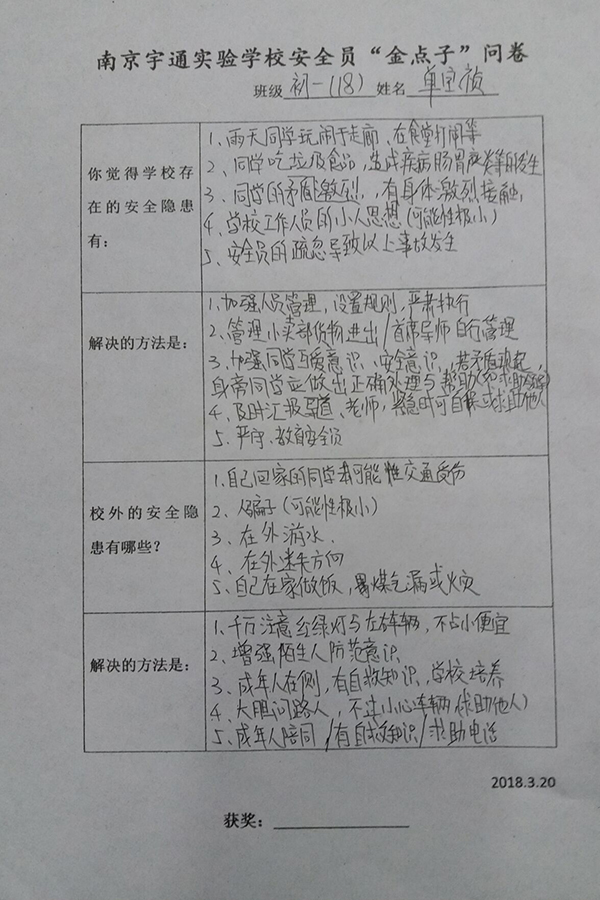 南京宇通实验学校安全员“金点子”问卷
班级 初一(18) 姓名 单宝祯
你觉得学校存在的安全隐患有：
1、雨天同学玩闹于走廊、在食堂打闹等
2、同学吃垃圾食品，造成疾病肠胃炎等的发生
3、同学的矛盾激烈，有身体激烈接触，
4、学校工作人员的小人思想(可能性极小)
5、安全员的疏忽导致以上事故发生
解决的方法是：
1、加强人员管理，设置规则，严肃执行
2、管理小卖部货物进出/首席导师自行管理
3、加强同学互爱意识、安全意识，若矛盾现起，
身旁同学应做出正确处理与帮助(和求助)
4、及时汇报导、老师，紧急时可自保或求助他人
5、严守、教育安全员
校外的安全隐患有哪些？
1、自己回家的同学有可能性交通受伤
2、骗子(可能性极小)
3、在外游水.
4、在外迷失方向
5、自己在家做饭，煤气漏或火灾
解决的方法是：
1、千万注意红绿灯与左右车辆，不占小便宜
2、增强陌生人防范意识
3、成年人在侧，有自救知识，学校培养
4、大胆问路人，不过小心车辆(求助他人)
5、成年人陪同/有自救知识/求助电话
2018.3.20
获奖：